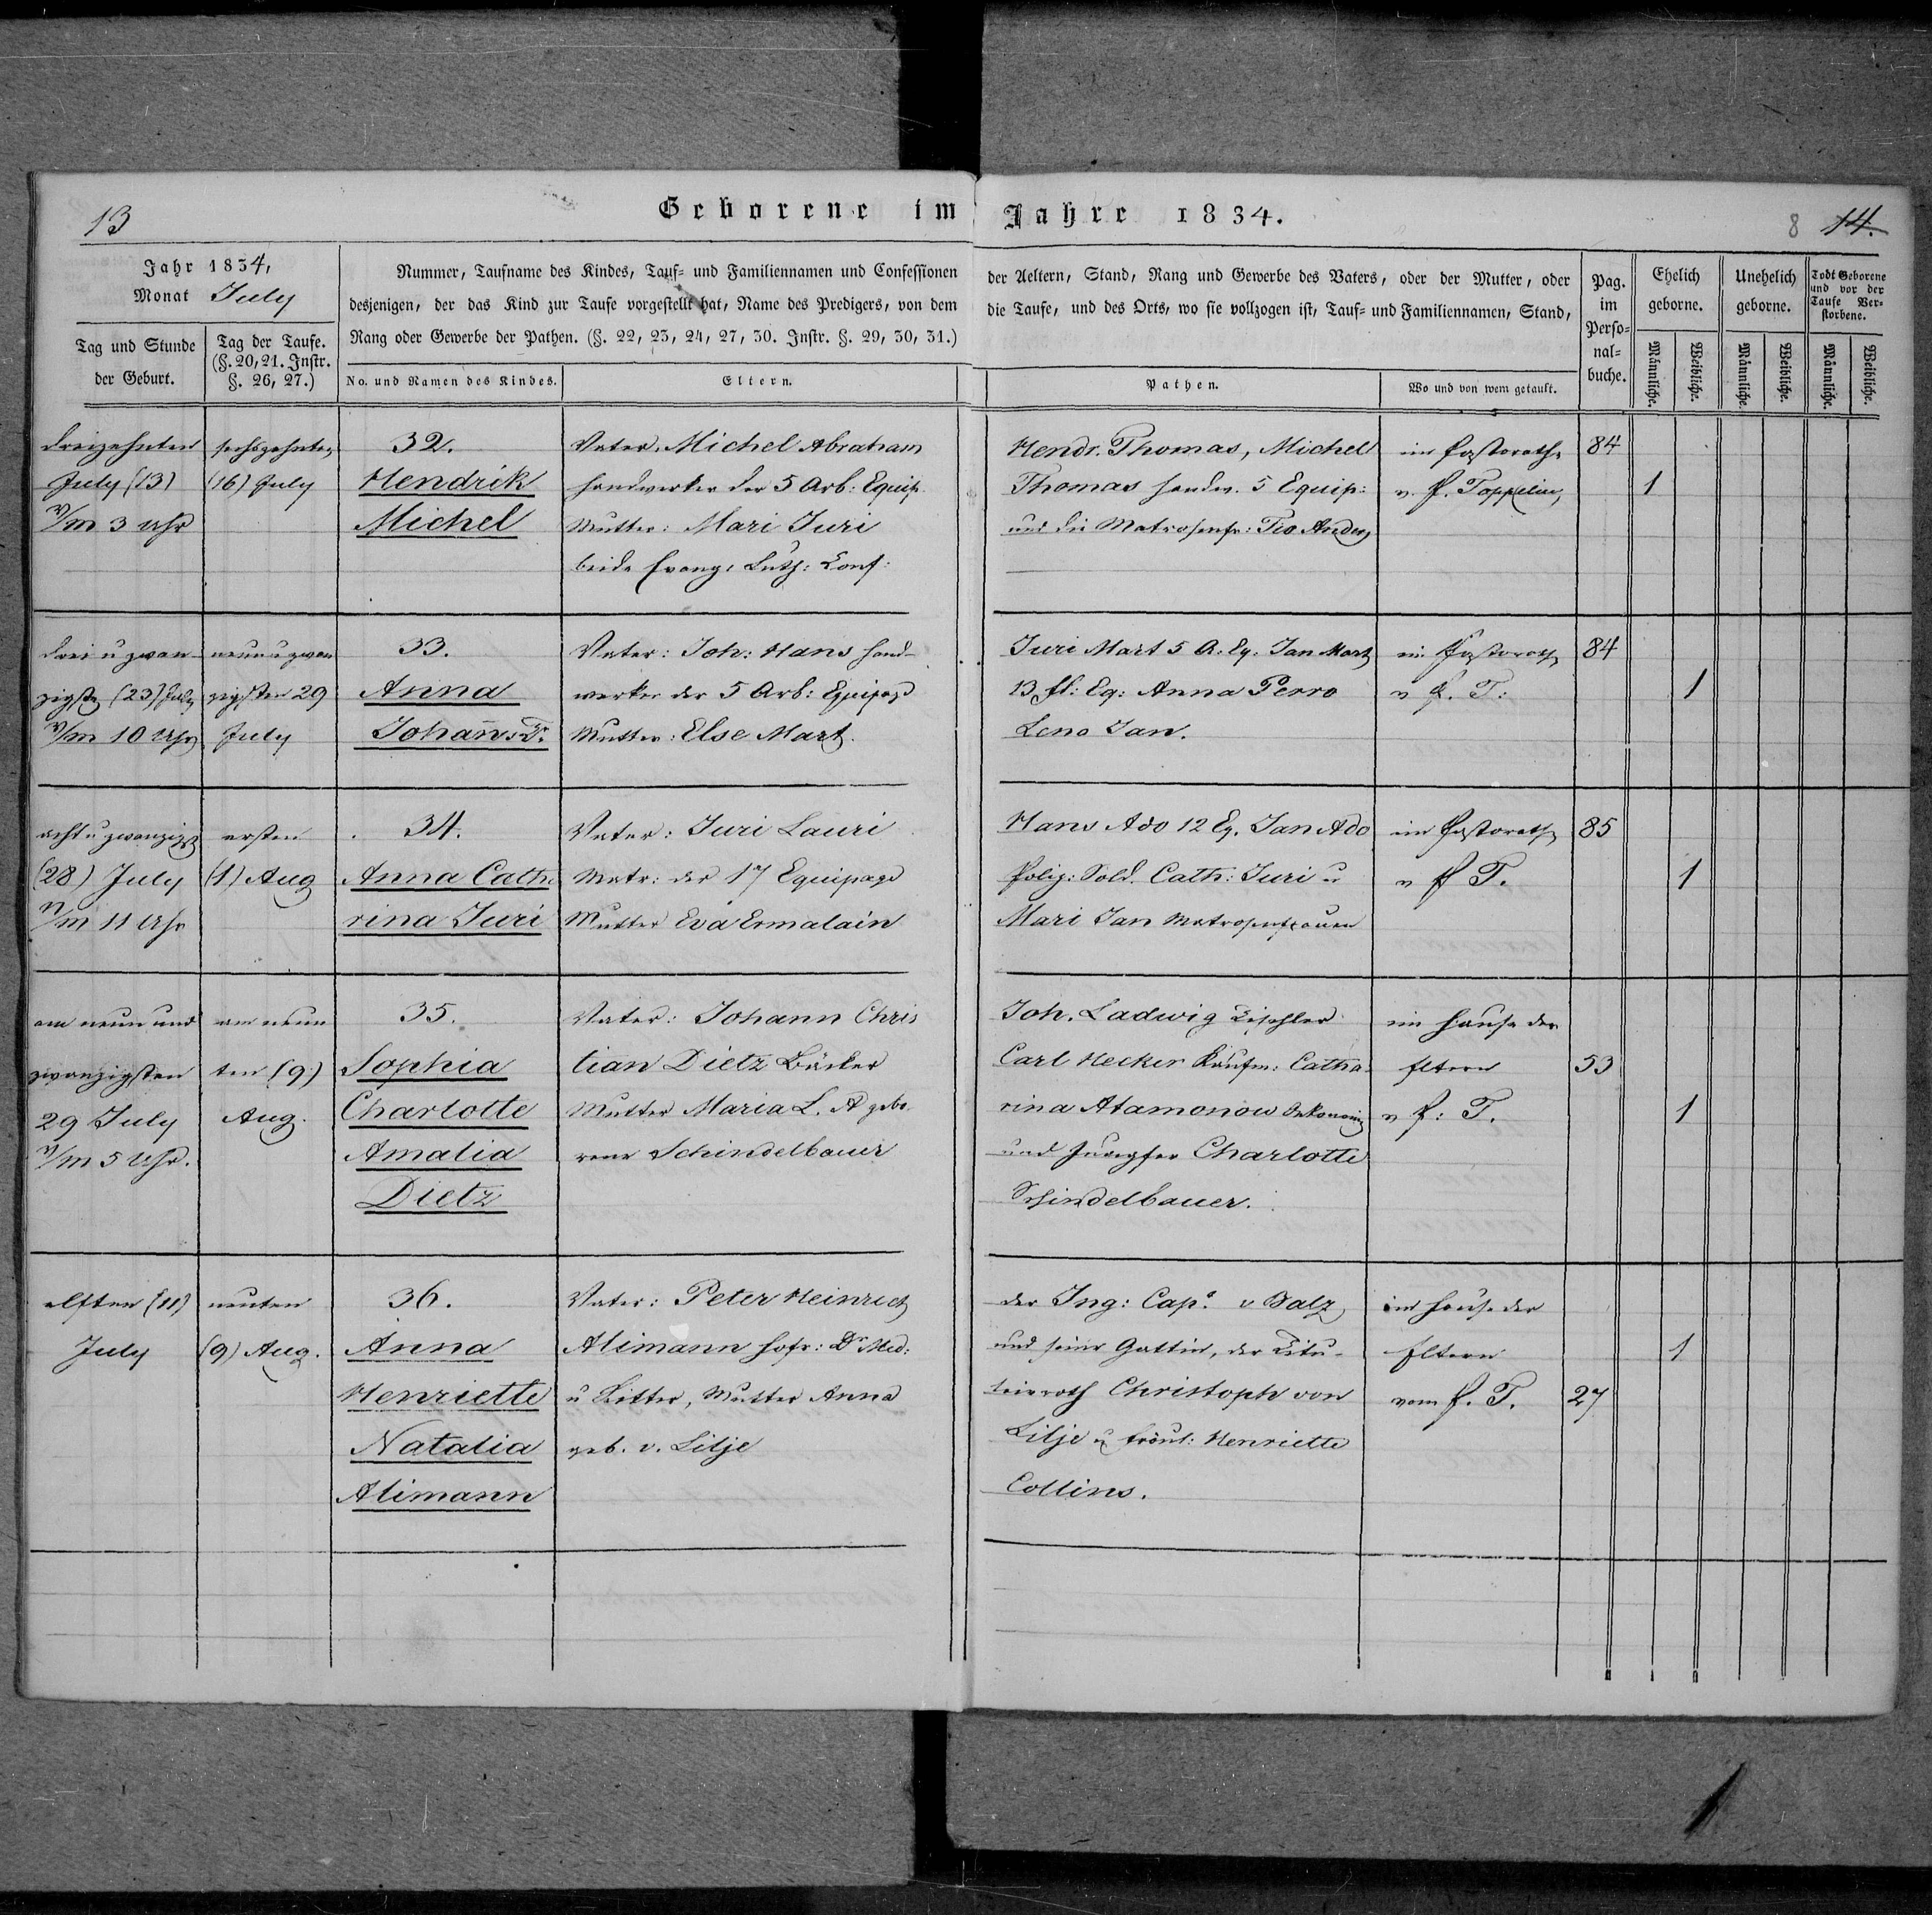 13
Geborene im Jahre 1834.
8 14.
Jahr 1834,
Monat July
Tag und Stunde der Geburt.
Tag der Taufe. (§. 20, 21. Instr. §. 26, 27.)
Nummer, Taufname des Kindes, Tauf- und Familiennamen und Confessionen der Aeltern, Stand, Rang und Gewerbe des Vaters, oder der Mutter, oder
desjenigen, der das Kind zur Taufe vorgestellt hat, Name des Predigers, von dem die Taufe, und des Orts, wo sie vollzogen ist, Tauf- und Familiennamen, Stand,
Rang oder Gewerbe der Pathen. (§. 22, 23, 24, 27, 30. Instr. §. 29, 30, 31.)
No. und Namen des Kindes.
Eltern.
Pathen.
Wo und von wem getauft.
Pag. im Perso-nal-buche.
Ehelich geborne.
Unehelich geborne.
Todt Geborene und vor der Taufe Ver-storbene.
Männliche.
Weibliche.
Männliche.
Weibliche.
Männliche.
Weibliche.
dreizehnten
July (13)
V/m 3 Uhr
sechszehnten
(16) July
32.
Hendrik
Michel
Vater: Michel Abraham
Handwerker der 5 Arb: Equip.
Mutter: Mari Juri
beide Evang: Luth: Conf:
Hendr. Thomas, Michel
Thomas Handw. 5 Equip:
und die Matrosenfr:
im Pastorathe
v. P.
84
1
drei u zwan-
zigsten (23) July
V/m 10 Uhr
neun u zwan
zigsten 29
July
33.
Anna
Johann. T.
Vater: Joh: Hans Hand-
werker der 5 Arb: Equipage
Mutter: Else Mart.
Juri Mart 5 A. Eq. Jan Mart
13 fl: Eq: Anna Perro
Leno Jan.
im Pastorath
v P. T:
84
1
acht u zwanzigst
(28) July
N/m 11 Uhr
ersten
(1) Aug
34.
Anna Cath
rina Juri
Vater: Juri Lauri
Matr: der 17 Equipage
Mutter Eva Ermalain
Hans Ado 12 Eq. Jan Ado
Poliz: Sold. Cath: Juri u
Mari Jan Matrosenfrauen
im Pastorath
v P T.
85
1
am neun und
zwanzigsten
29 July
V/m 5 Uhr.
am neun
ten (9)
Aug.
35.
Sophia
Charlotte
Amalia
Dietz
Vater: Johann Chris
tian Dietz Bäcker
Mutter Maria L. A gebo
rene Schindelbauer
Joh. Ladwig Tischler
Carl Hecker Kaufm: Catha
rina Atamonow
und Jungfer Charlotte
Schindelbauer.
im Hause der
Eltern
v P: T.
53
1
elften (11)
July
neunten
(9) Aug.
36.
Anna
Henriette
Natalia
Alimann
Vater: Peter Heinrich
Alimann Hofr: Dr Med:
u Ritter, Mutter Anna
geb. v. Lilje
der Ing: Cap: v Salz
und seine Gattin, der Titu-
lairrath Christoph von
Lilje u Fräul: Henriette
Collins.
im Hause der
Eltern
vom P. T.
27
1